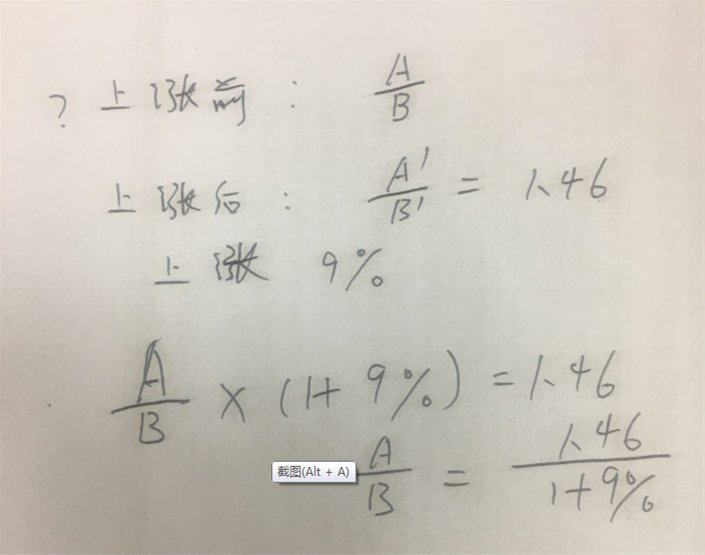 ? 上涨前： A/B
上涨后： A'/B' = 1.46
上涨 9%
A/B × (1+9%) = 1.46
截图(Alt + A)
A/B = 1.46/1+9%